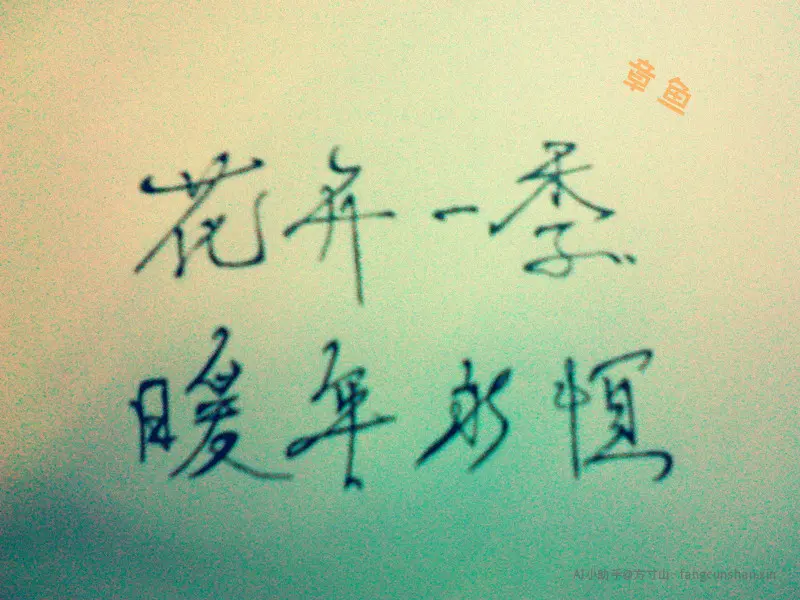 章鱼
花弃一季
暖年永恒
AI小助手@方寸山 · fangcunshan.xin